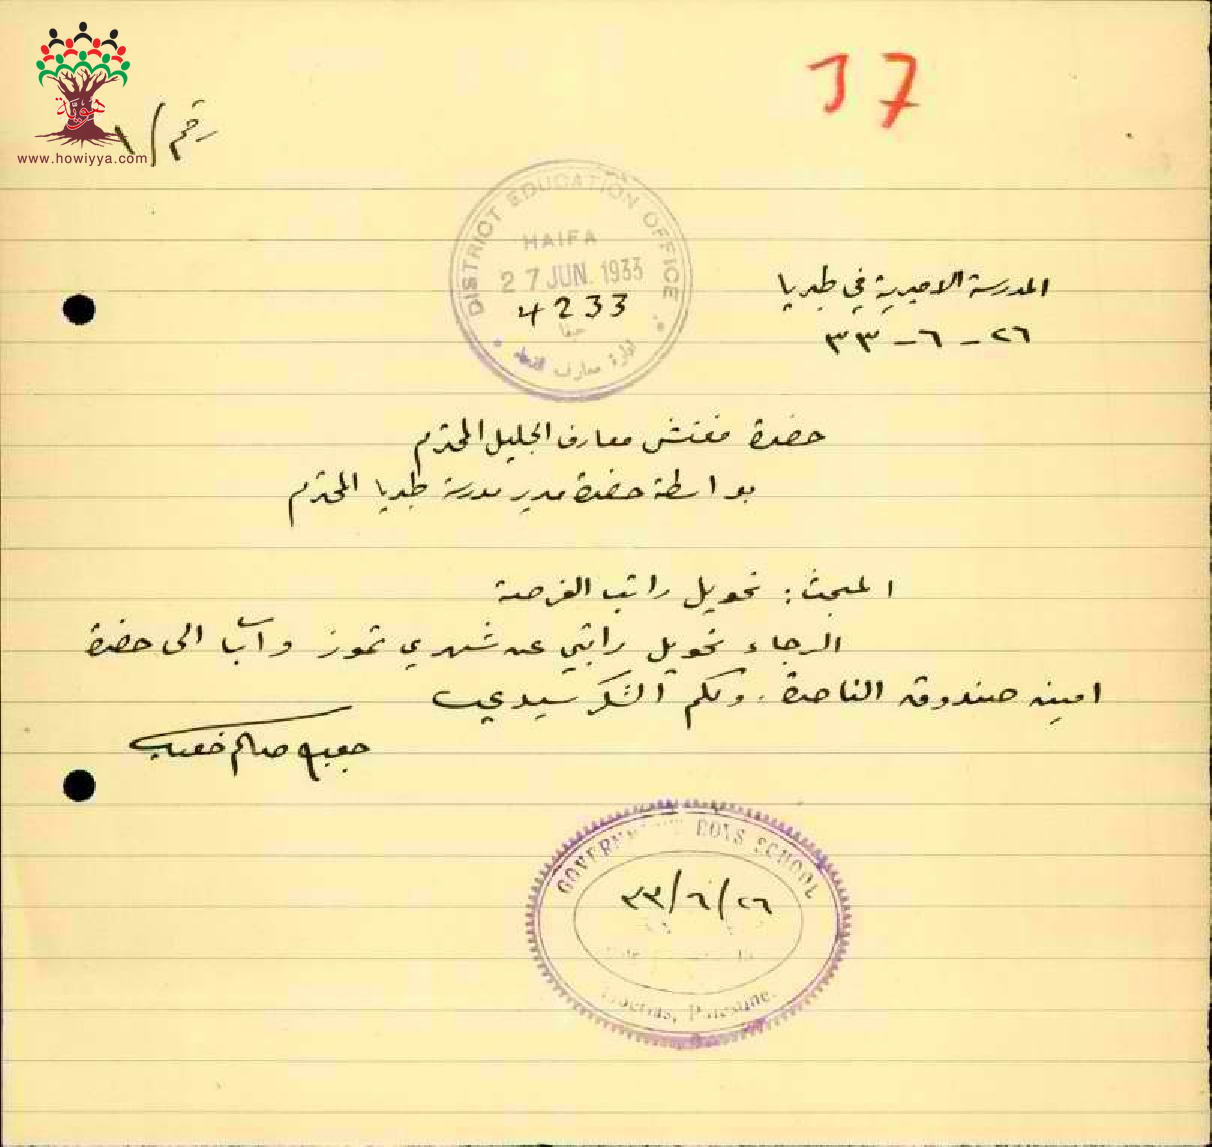 هوية
www.howiyya.com
37
رقم / ١
DISTRICT EDUCATION OFFICE
HAIFA
27 JUN. 1933
4233
حيفا
ادارة معارف القضاء
المدرسة الاميرية في طبريا
٢٦ - ٦ - ٣٣
حضرة مفتش معارف الجليل المحترم
بواسطة حضرة مدير مدرسة طبريا المحترم
المبحث: تحويل راتب الفرصة
الرجاء تحويل راتبي عن شهري تموز وآب الى حضرة
امين صندوق الناصرة. ولكم الشكر سيدي
صالح
GOVERNMENT BOYS SCHOOL
٢٦/٦/٣٣
Tiberias, Palestine.